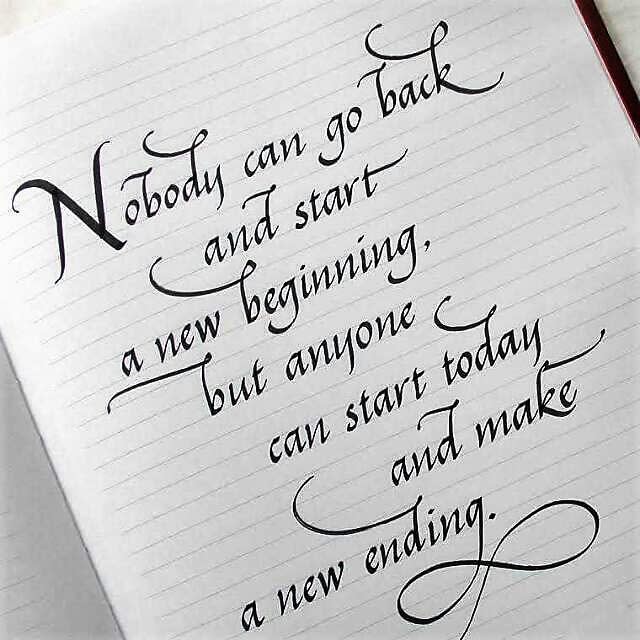 Nobody can go back
and start
a new beginning,
but anyone
can start today
and make
a new ending.